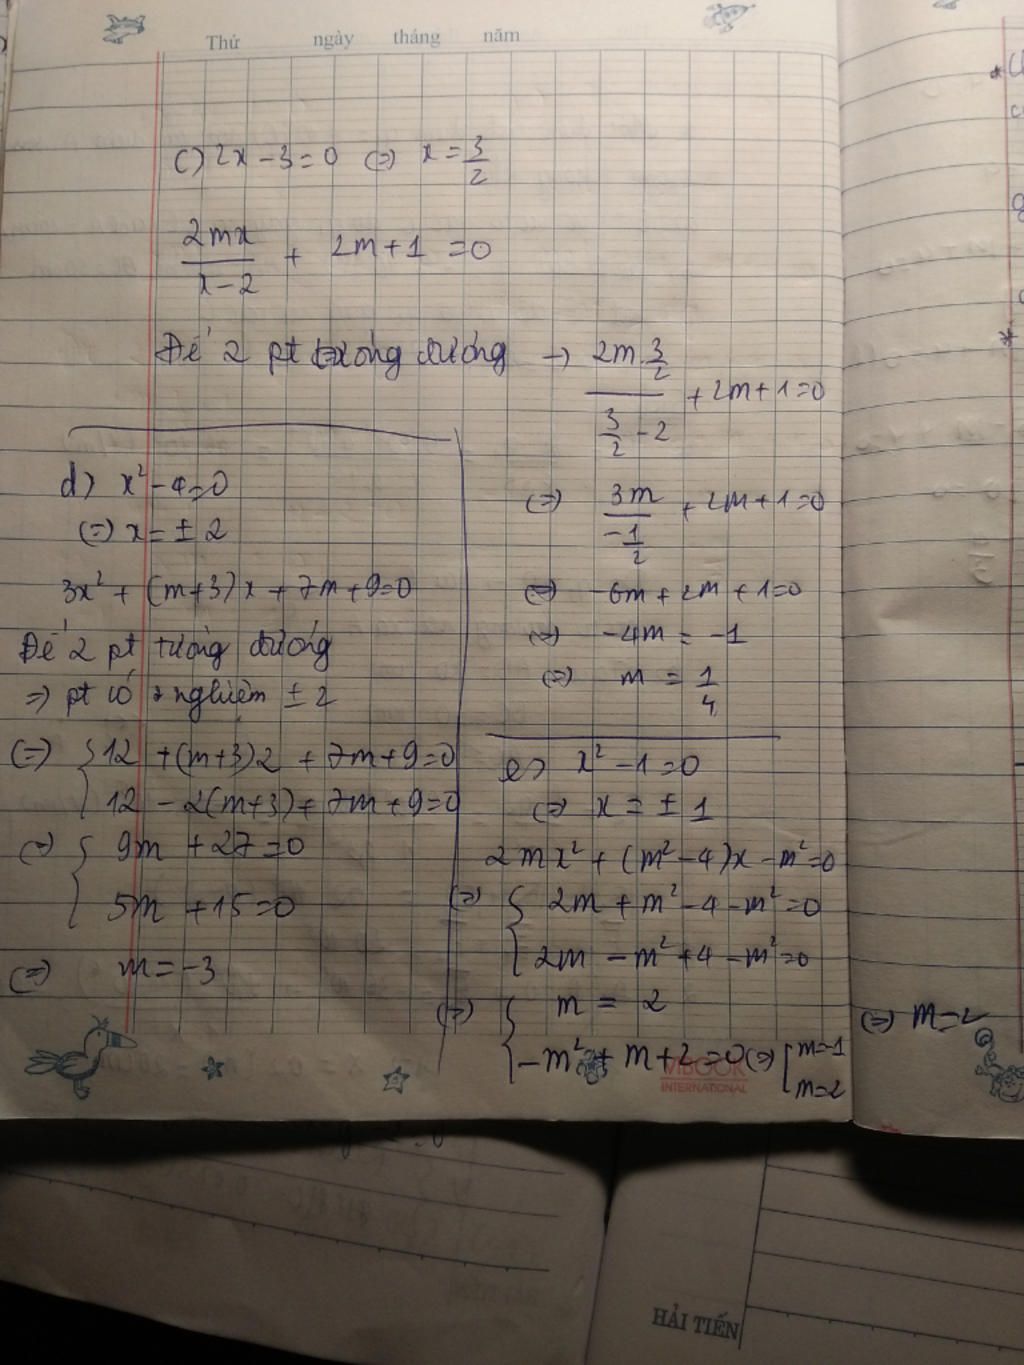 Thứ ngày tháng năm
c) 2x - 3 = 0 (=) x = 3/2
2mx/(x-2) + 2m + 1 = 0
Để 2 pt tương đương → (2m.3/2)/(3/2 - 2) + 2m + 1 = 0
(=) 3m/(-1/2) + 2m + 1 = 0
(=) -6m + 2m + 1 = 0
(=) -4m = -1
(=) m = 1/4
d) x² - 4 = 0
(=) x = ± 2
3x² + (m+3)x + 7m + 9 = 0
Để 2 pt tương đương
=> pt có 2 nghiệm ± 2
(=) { 12 + (m+3)2 + 7m + 9 = 0
12 - 2(m+3) + 7m + 9 = 0
(=) { 9m + 27 = 0
5m + 15 = 0
(=) m = -3
e) x² - 1 = 0
(=) x = ± 1
2mx² + (m² - 4)x - m² = 0
(=) { 2m + m² - 4 - m² = 0
2m - m² + 4 - m² = 0
(=) { m = 2
-m² + m + 2 = 0 (=) [ m = -1
m = 2
(=) m = 2
VIBOOK
INTERNATIONAL
HẢI TIẾN